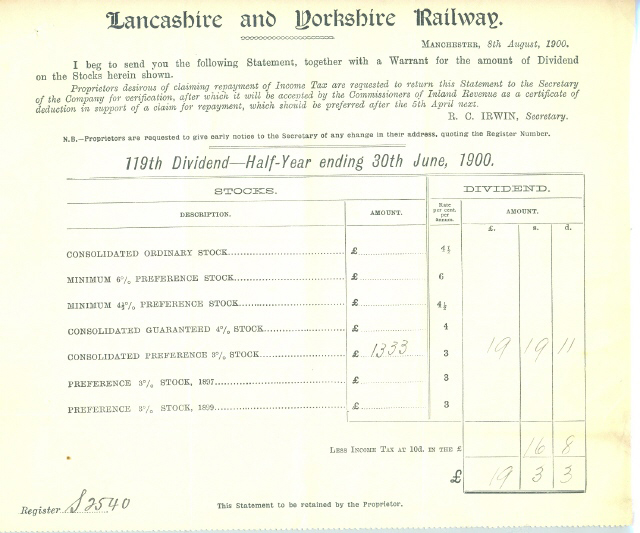 Lancashire and Yorkshire Railway.
MANCHESTER, 8th August, 1900.
I beg to send you the following Statement, together with a Warrant for the amount of Dividend
on the Stocks herein shown.
Proprietors desirous of claiming repayment of Income Tax are requested to return this Statement to the Secretary
of the Company for verification, after which it will be accepted by the Commissioners of Inland Revenue as a certificate of
deduction in support of a claim for repayment, which should be preferred after the 5th April next.
R. C. IRWIN, Secretary.
N.B.—Proprietors are requested to give early notice to the Secretary of any change in their address, quoting the Register Number.
119th Dividend—Half-Year ending 30th June, 1900.
STOCKS. DIVIDEND.
DESCRIPTION. AMOUNT. Rate per cent. per annum. AMOUNT.
£. s. d.
CONSOLIDATED ORDINARY STOCK £ 4½
MINIMUM 6% PREFERENCE STOCK £ 6
MINIMUM 4½% PREFERENCE STOCK £ 4½
CONSOLIDATED GUARANTEED 4% STOCK £ 4
CONSOLIDATED PREFERENCE 3% STOCK £ 1333 3 19 19 11
PREFERENCE 3% STOCK, 1897 £ 3
PREFERENCE 3% STOCK, 1899 £ 3
LESS INCOME TAX AT 10d. IN THE £ 16 8
£ 19 3 3
Register S2540
This Statement to be retained by the Proprietor.